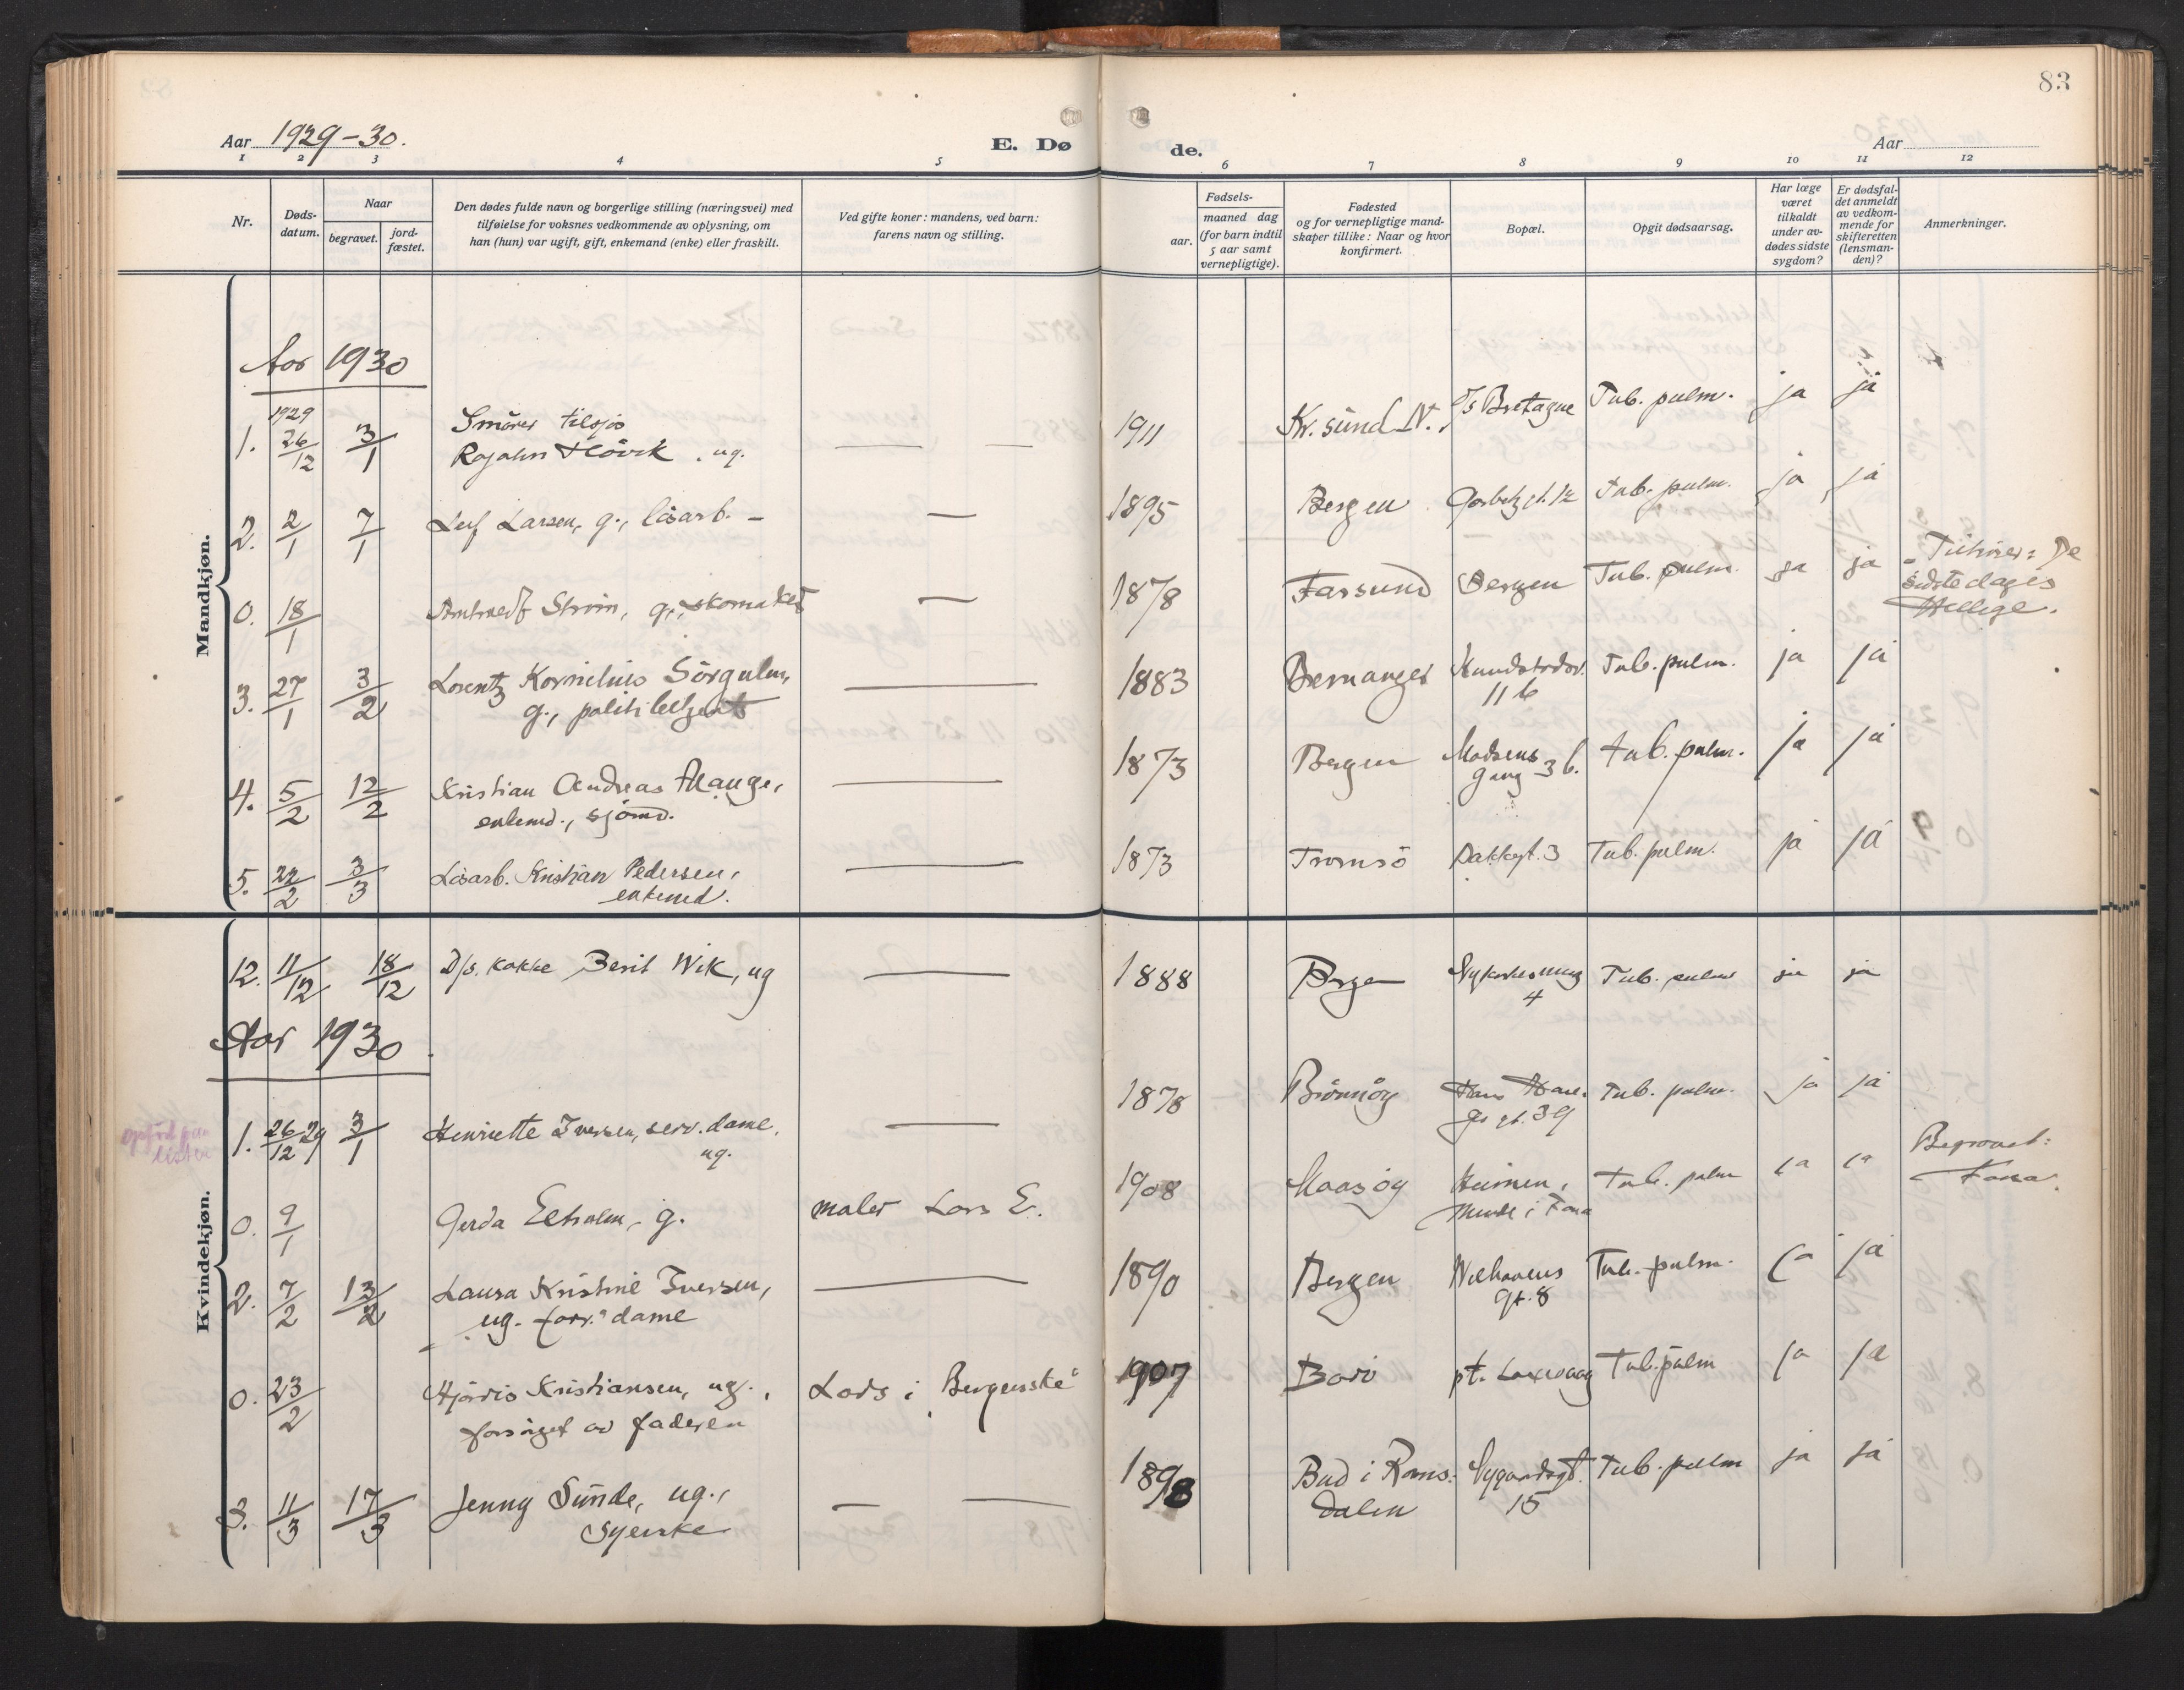 83
Aar 1929-30.
E. Dø
de.
Aar
1 2 3 4 5 6 7 8 9 10 11 12
Nr.
Døds-
datum.
Naar
begravet.
jord-
fæstet.
Den dødes fulde navn og borgerlige stilling (næringsvei) med
tilføielse for voksnes vedkommende av oplysning, om
han (hun) var ugift, gift, enkemand (enke) eller fraskilt.
Ved gifte koner: mandens, ved barn:
farens navn og stilling.
Fødsels-
aar.
maaned dag
(for barn indtil
5 aar samt
vernepligtige).
Fødested
og for vernepligtige mand-
skaper tillike: Naar og hvor
konfirmert.
Bopæl.
Opgit dødsaarsag.
Har læge
været
tilkaldt
under av-
dødes sidste
sygdom?
Er dødsfal-
det anmeldt
av vedkom-
mende for
skifteretten
(lensman-
den)?
Anmerkninger.
Mandkjøn.
Aar 1930
1. 1929 26/12 3/1 Smører tilsjøs
Rojahn Hövik, ug. — — 1911 Kr.sund N. D/s Bretagne Tub. pulm. ja ja
2. 2/1 7/1 Leif Larsen, g., lösarb. — — 1895 Bergen Tub. pulm. ja ja
0. 18/1 Ström, g., skomaker — 1878 Farsund Bergen Tub. pulm. ja ja Tilhörer: De
sidste dages
Hellige.
3. 27/1 3/2 Lorentz Kornelius
g., politibetjent — 1883 Tub. pulm. ja ja
11 b
4. 5/2 12/2 Kristian Andreas Mange,
enkemd., sjömd. — 1873 Bergen Madsens
gang 3 b. Tub. pulm. ja ja
5. 22/2 3/3 Lösarb. Kristian Pedersen,
enkemd. — 1873 Tromsö 3 Tub. pulm. ja ja
Kvindekjøn.
12. 11/12 18/12 D/s. kokke Berit Wik, ug — 1888 Bergen 4 Tub. pulm ja ja
Aar 1930.
1. 26/12 29 3/1 Henriette Iversen, serv. dame,
ug. — 1878 Brönnöy Hans Hau-
ges gt. 39 Tub. pulm. ja ja
0. 9/1 Gerda, g. maler Lars E. 1908 Maasöy Heimen,
i Fana Tub. pulm ja ja Begravet:
Fana.
2. 7/2 13/2 Laura Kristine Iversen,
ug. forr. dame — 1890 Bergen Welhavens
gt. 8 Tub. pulm. ja ja
0. 23/2 Hjördis Kristiansen, ug.,
forsörget av faderen Lods i "Bergenske" 1907 Bodö pt. Laxevaag Tub. pulm ja ja
3. 11/3 17/3 Jenny Sunde, ug.,
syerske — — 1898 Bud i Roms-
dalen Nygaardsgt.
15 Tub. pulm ja ja